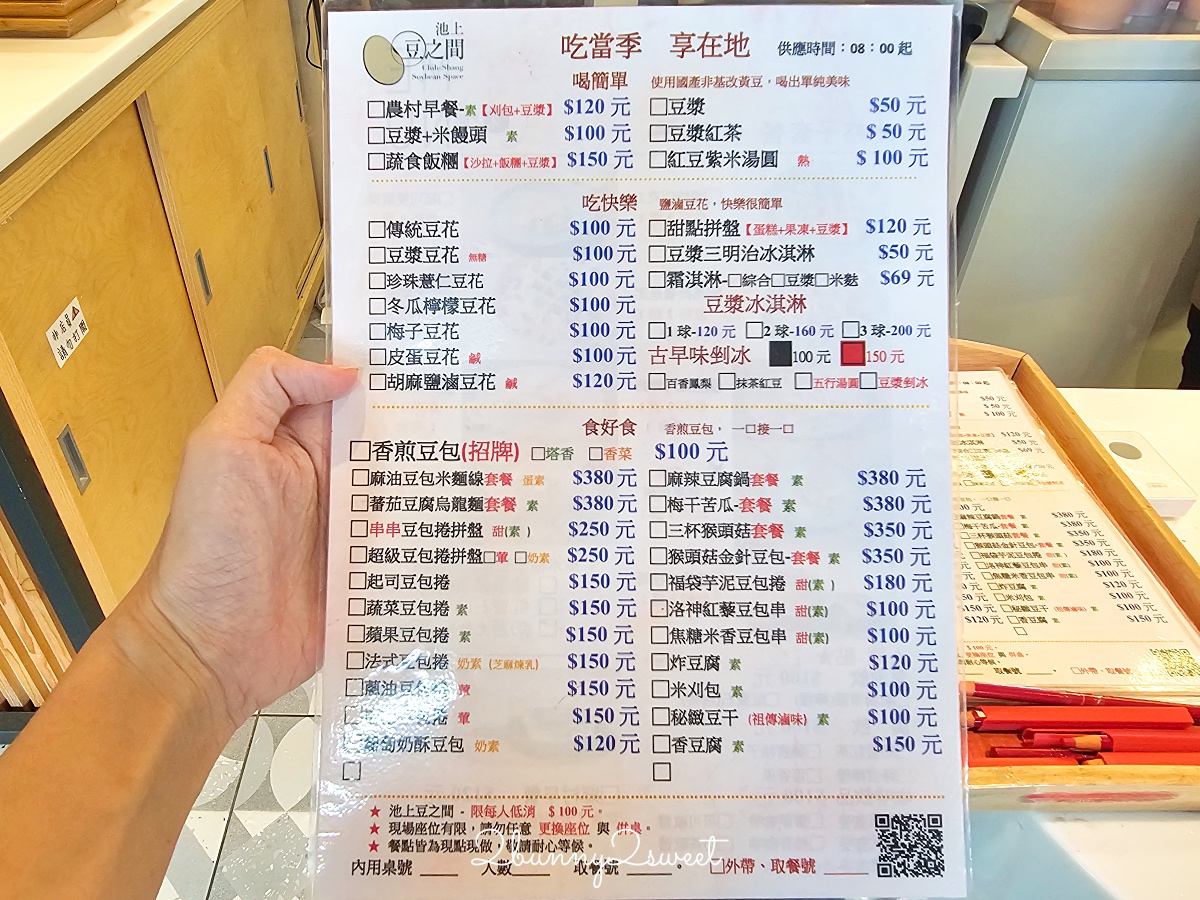 池上
豆之間
Chih-Shang
Soybean Space
吃當季 享在地 供應時間：08：00 起
喝簡單 使用國產非基改黃豆，喝出單純美味
□農村早餐-素【刈包+豆漿】 $120 元
□豆漿+米饅頭 素 $100 元
□蔬食飯糰【沙拉+飯糰+豆漿】 $150 元
□豆漿 $50 元
□豆漿紅茶 $ 50 元
□紅豆紫米湯圓 熱 $ 100 元
吃快樂 鹽滷豆花，快樂很簡單
□傳統豆花 $100 元
□豆漿豆花 無糖 $100 元
□珍珠薏仁豆花 $100 元
□冬瓜檸檬豆花 $100 元
□梅子豆花 $100 元
□皮蛋豆花 鹹 $100 元
□胡麻鹽滷豆花 鹹 $120 元
□甜點拼盤【蛋糕+果凍+豆漿】 $120 元
□豆漿三明治冰淇淋 $50 元
□霜淇淋-□綜合□豆漿□米麩 $69 元
豆漿冰淇淋
□1 球-120 元 □2 球-160 元 □3 球-200 元
古早味剉冰 100 元 150 元
□百香鳳梨 □抹茶紅豆 □五行湯圓□豆漿剉冰
食好食 香煎豆包，一口接一口
□香煎豆包(招牌) □塔香 □香菜 $100 元
□麻油豆包米麵線套餐 蛋素 $380 元
□蕃茄豆腐烏龍麵套餐 素 $380 元
□串串豆包捲拼盤 甜(素 ) $250 元
□超級豆包捲拼盤□葷 □奶素 $250 元
□起司豆包捲 $150 元
□蔬菜豆包捲 素 $150 元
□蘋果豆包捲 素 $150 元
□法式豆包捲 奶素 (芝麻煉乳) $150 元
蔥油豆包 葷 $150 元
捲 葷 $150 元
奶酥豆包 奶素 $120 元
□
□麻辣豆腐鍋套餐 素 $380 元
□梅干苦瓜-套餐 素 $380 元
□三杯猴頭菇套餐 素 $350 元
□猴頭菇金針豆包-套餐 素 $350 元
□福袋芋泥豆包捲 甜(素 ) $180 元
□洛神紅藜豆包串 甜(素) $100 元
□焦糖米香豆包串 甜(素) $100 元
□炸豆腐 素 $120 元
□米刈包 素 $100 元
□秘緻豆干 (祖傳滷味) 素 $100 元
□香豆腐 素 $150 元
□
★ 池上豆之間 - 限每人低消 $ 100 元。
★ 現場座位有限，請勿任意 更換座位 與 併桌。
★ 餐點皆為現點現做，敬請耐心等候。
內用桌號 ____ 人數____ 取餐號 ____。 □外帶、取餐號 ____
2bunny2sweet
非店員
請勿打開